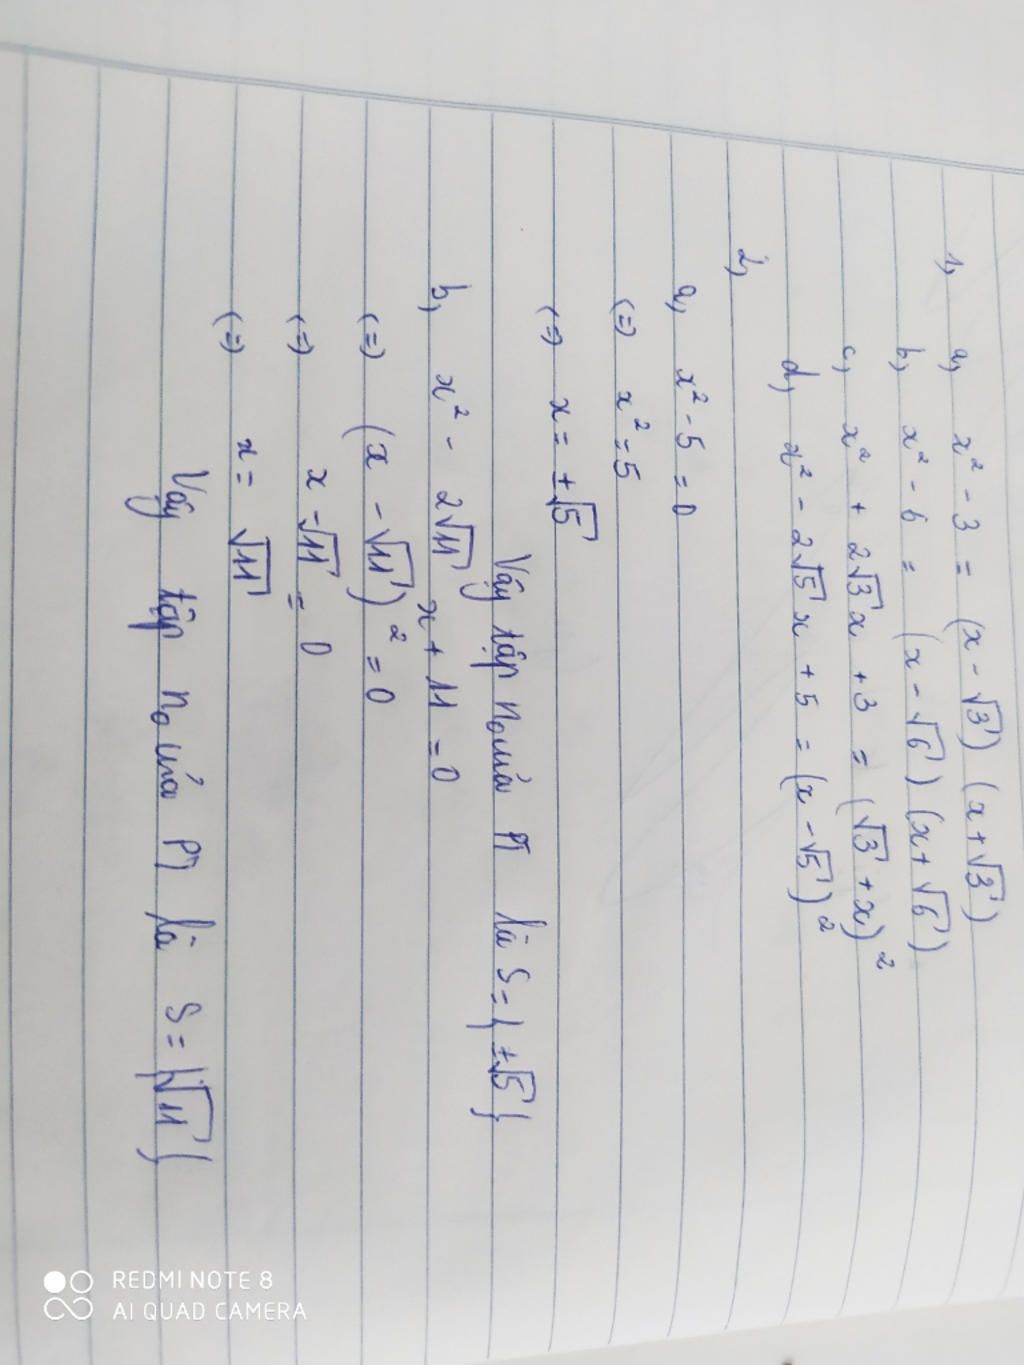 1, a, x² - 3 = (x - √3) (x + √3)
b, x² - 6 = (x - √6) (x + √6)
c, x² + 2√3x + 3 = (√3 + x)²
d, x² - 2√5x + 5 = (x - √5)²
2,
a, x² - 5 = 0
(=) x² = 5
(=) x = ±√5
Vậy tập no của PT là S = { ±√5 }
b, x² - 2√11 x + 11 = 0
(=) (x - √11)² = 0
(=) x - √11 = 0
(=) x = √11
Vậy tập no của PT là S = {√11}
REDMI NOTE 8
AI QUAD CAMERA